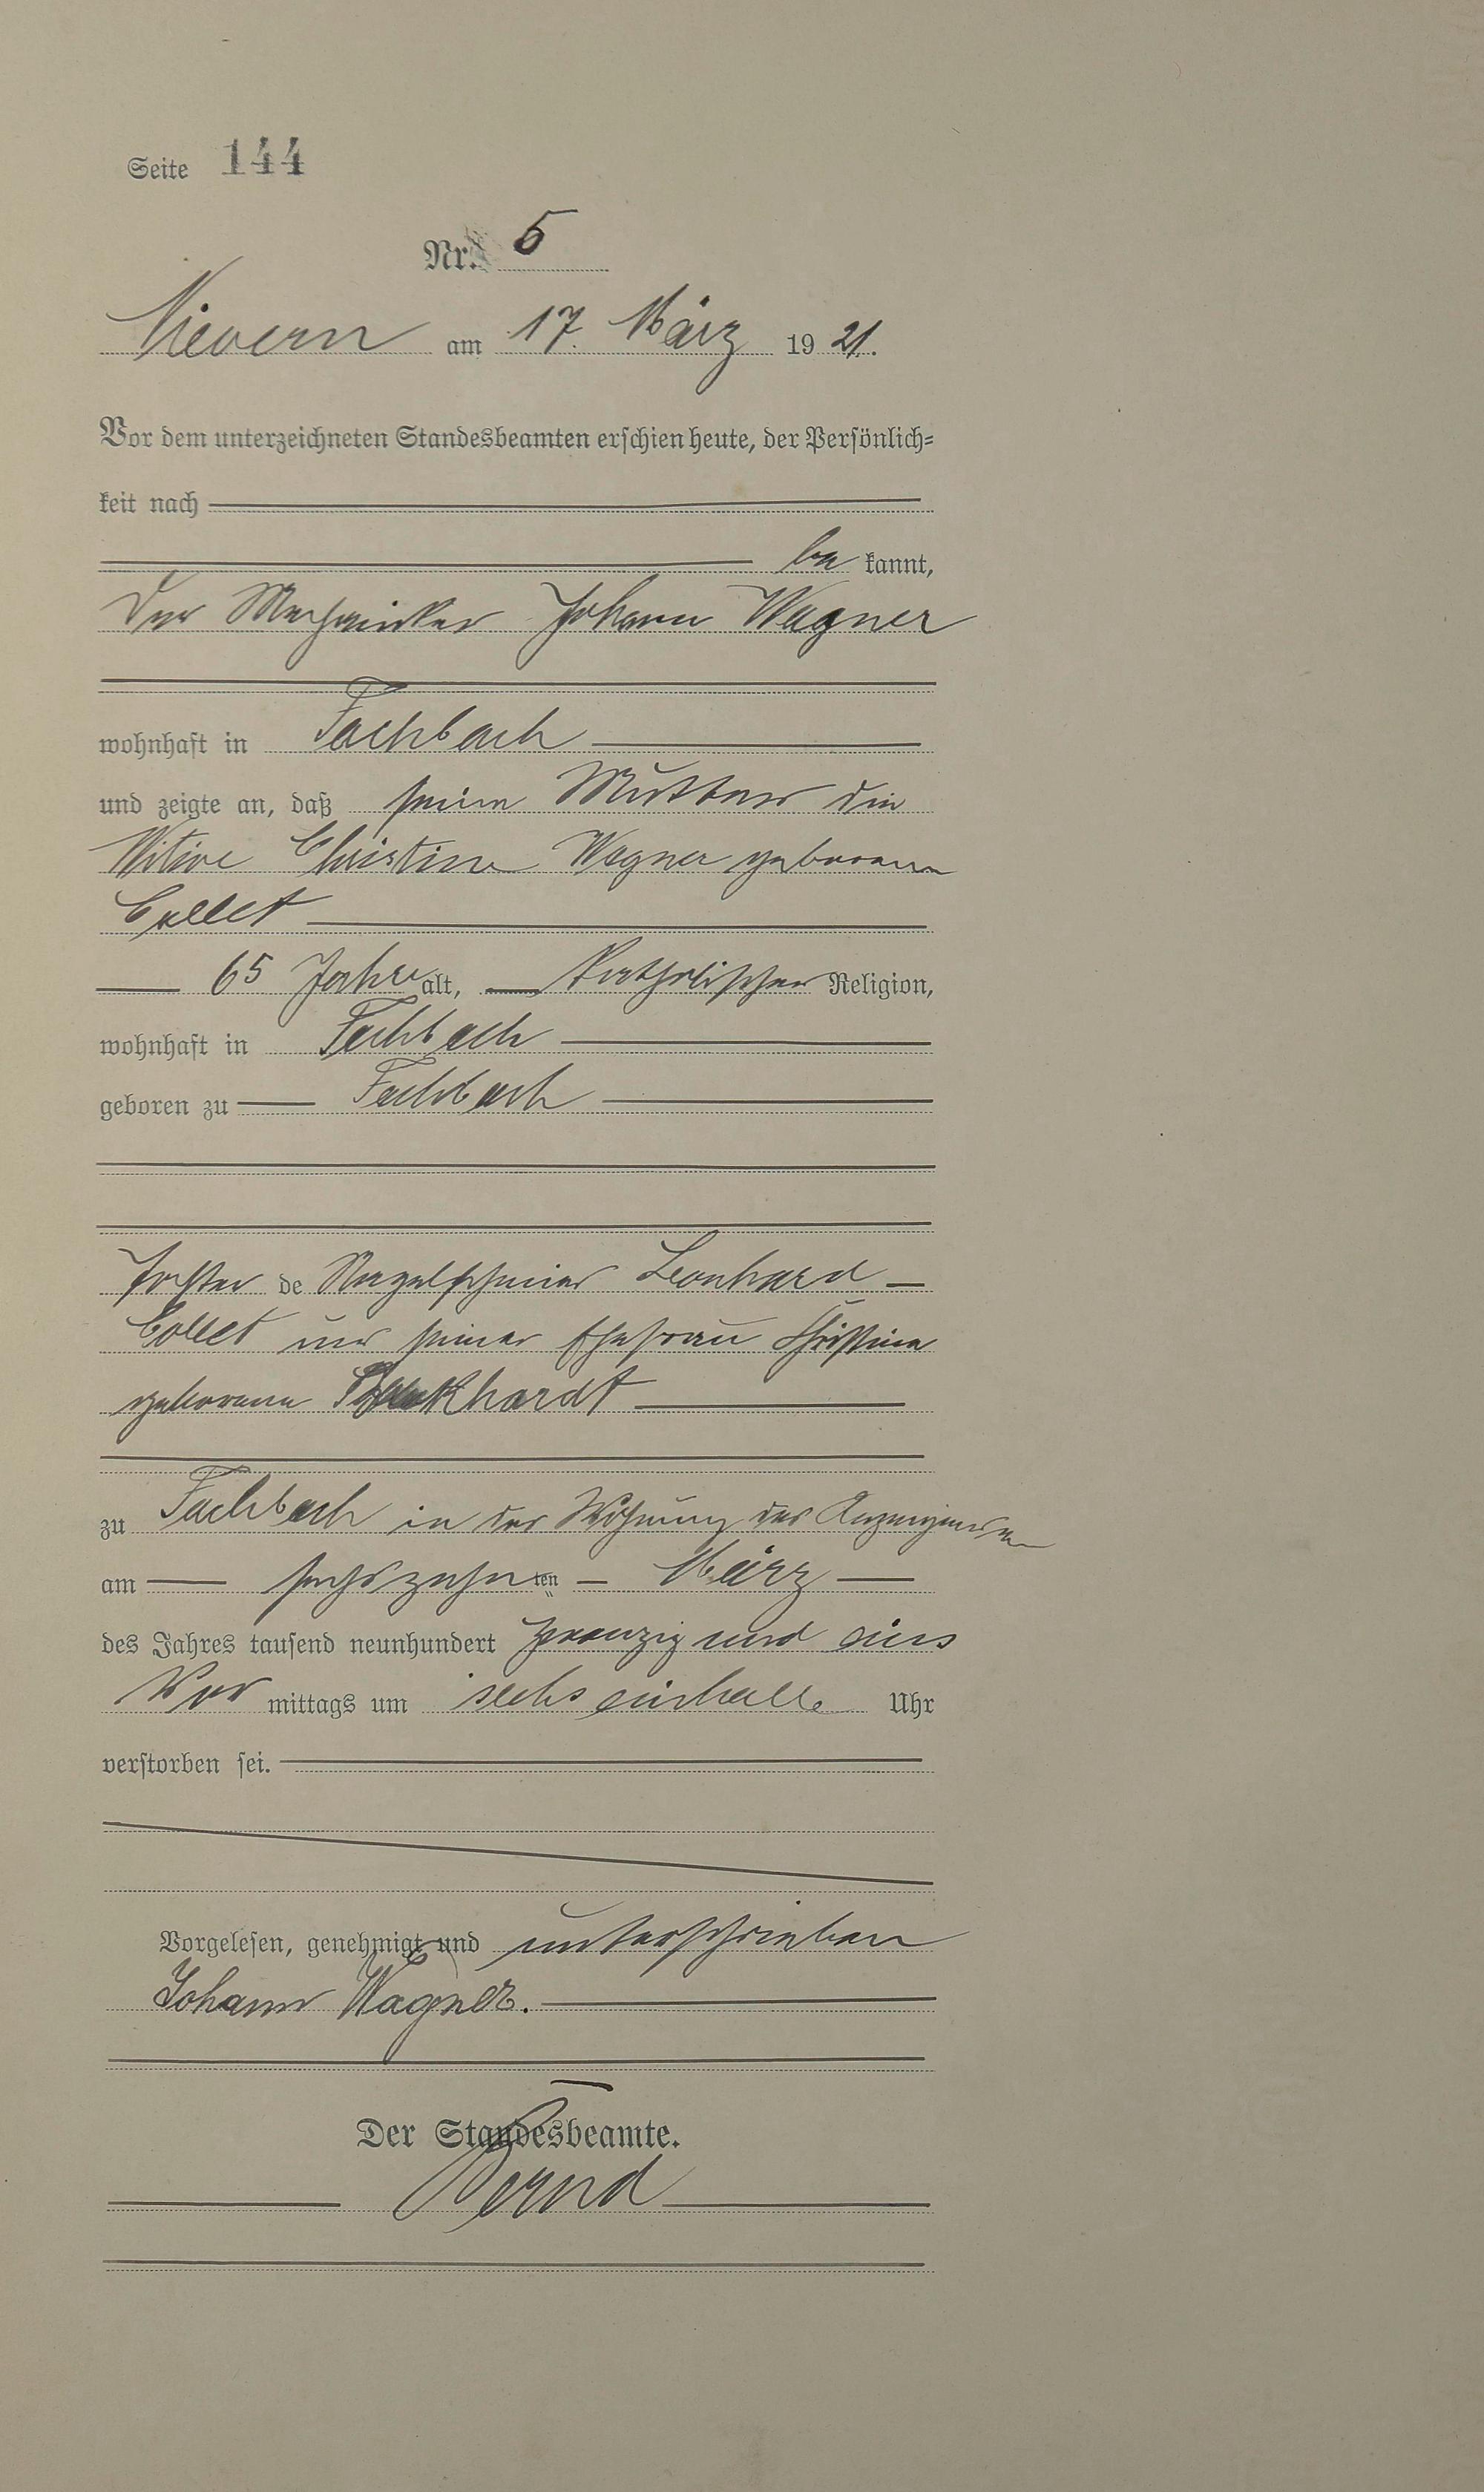 Seite 144
Nr. 5
Nievern am 17. März 1921.
Vor dem unterzeichneten Standesbeamten erschien heute, der Persönlich=
keit nach
be kannt,
der Mechaniker Johann Wagner
wohnhaft in Fachbach
und zeigte an, daß seine Mutter die
Witwe Christine Wagner geborene
Collet
65 Jahre alt, katholischer Religion,
wohnhaft in Fachbach
geboren zu Fachbach
Tochter de Nagelschmied Leonhard
Collet und seiner Ehefrau Christina
geborene
zu Fachbach in der Wohnung des Anzeigenden
am sechszehnten März
des Jahres tausend neunhundert zwanzig und eins
Vor mittags um sechs einhalb Uhr
verstorben sei.
Vorgelesen, genehmigt und unterschrieben
Johann Wagner.
Der Standesbeamte.
Bernd